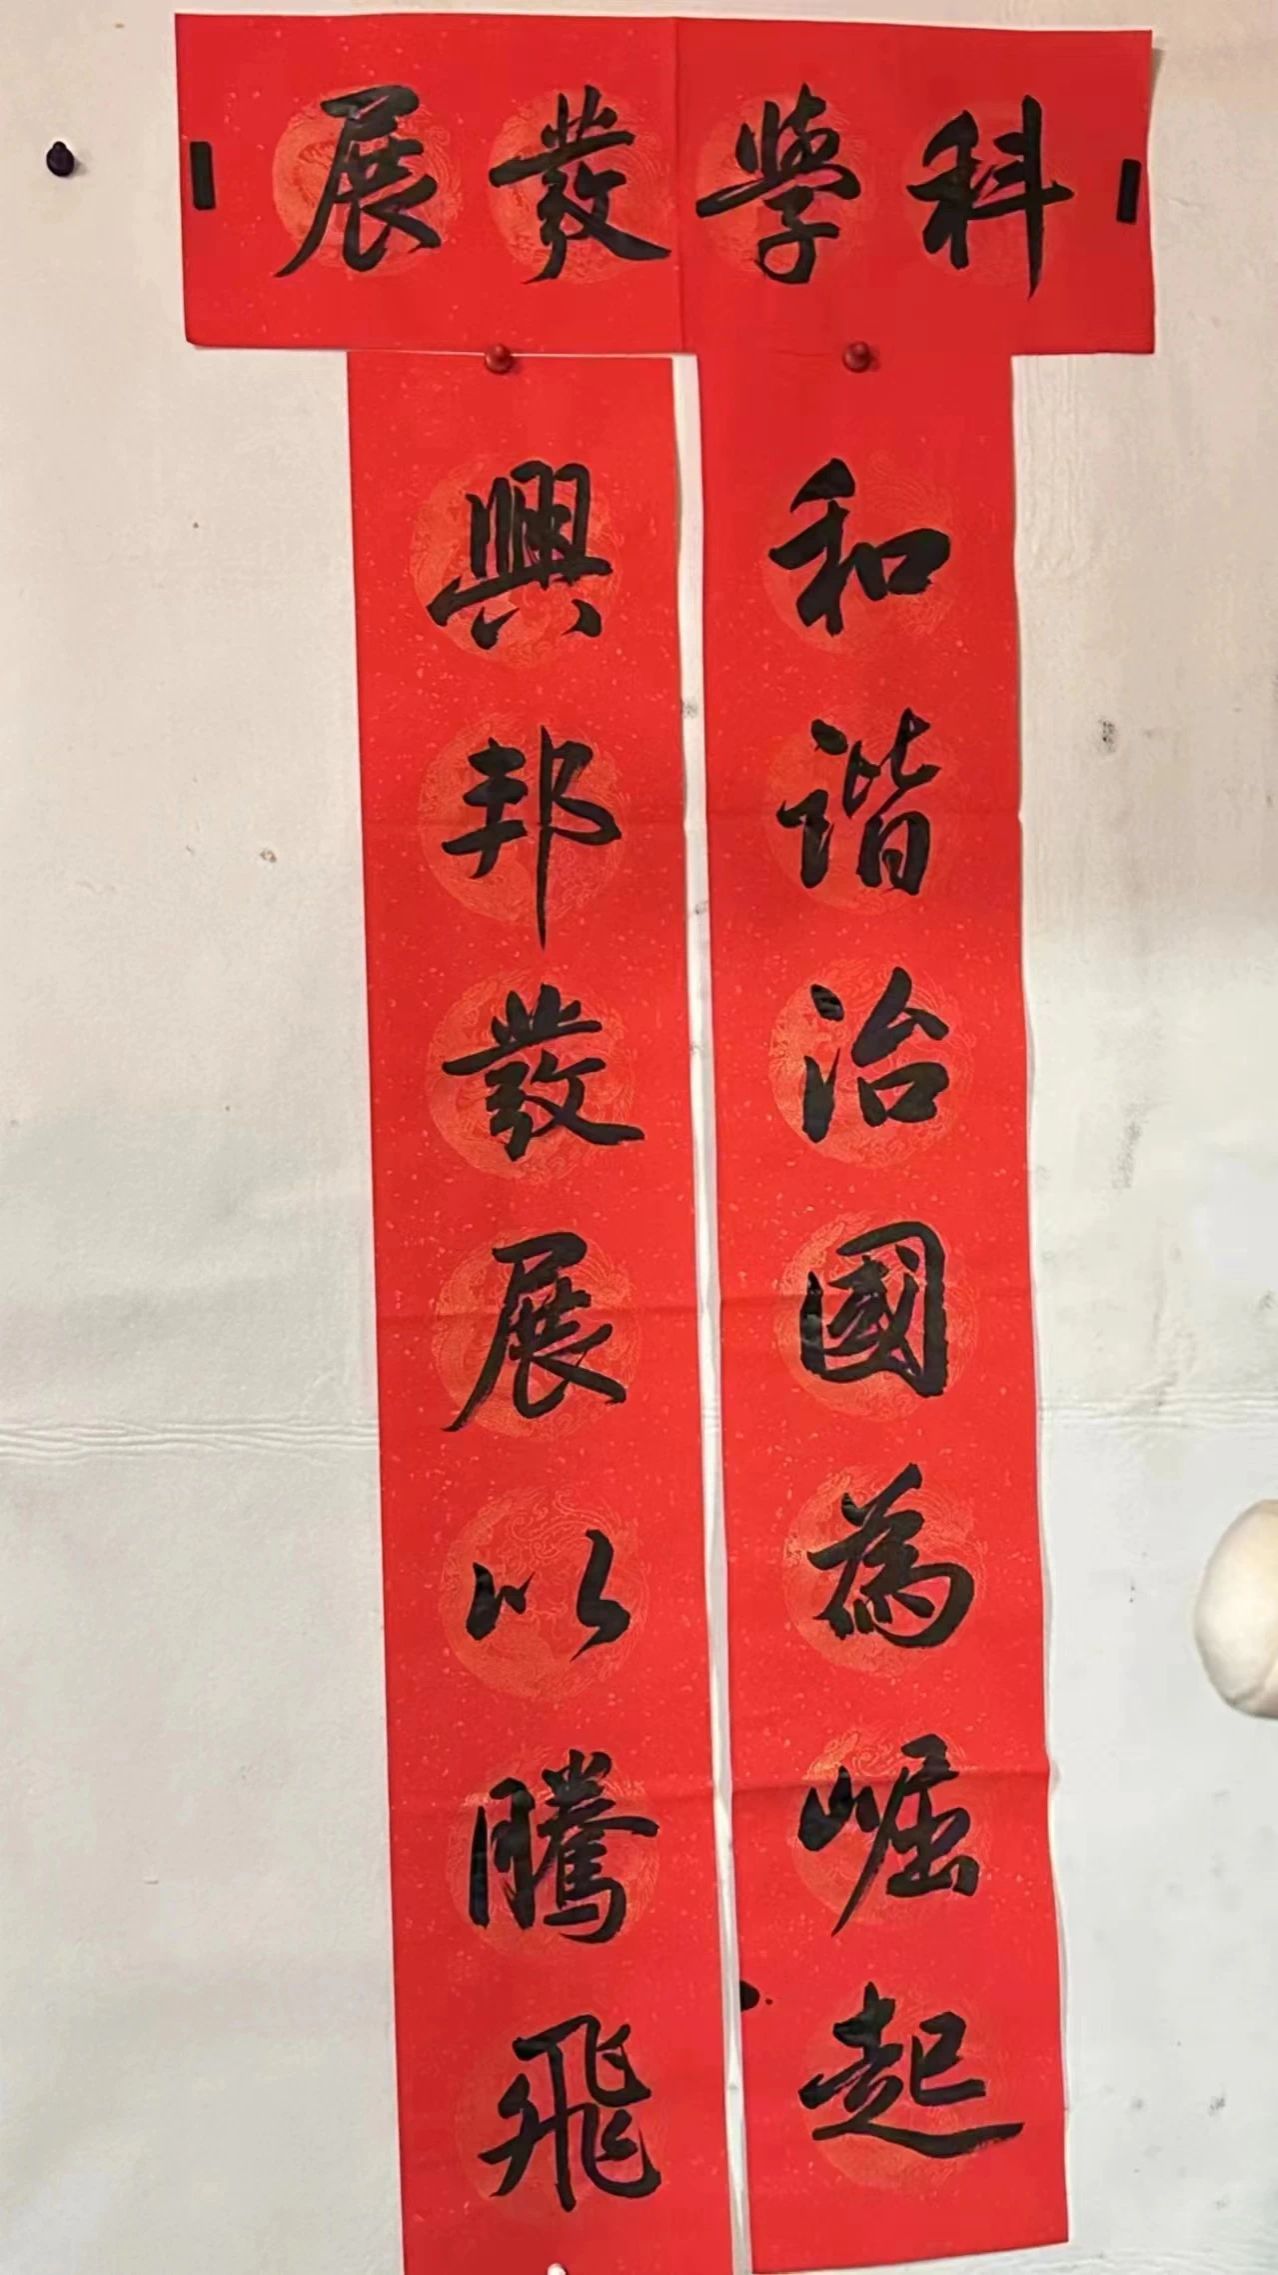 科學發展
和谐治國為崛起
興邦發展以騰飛